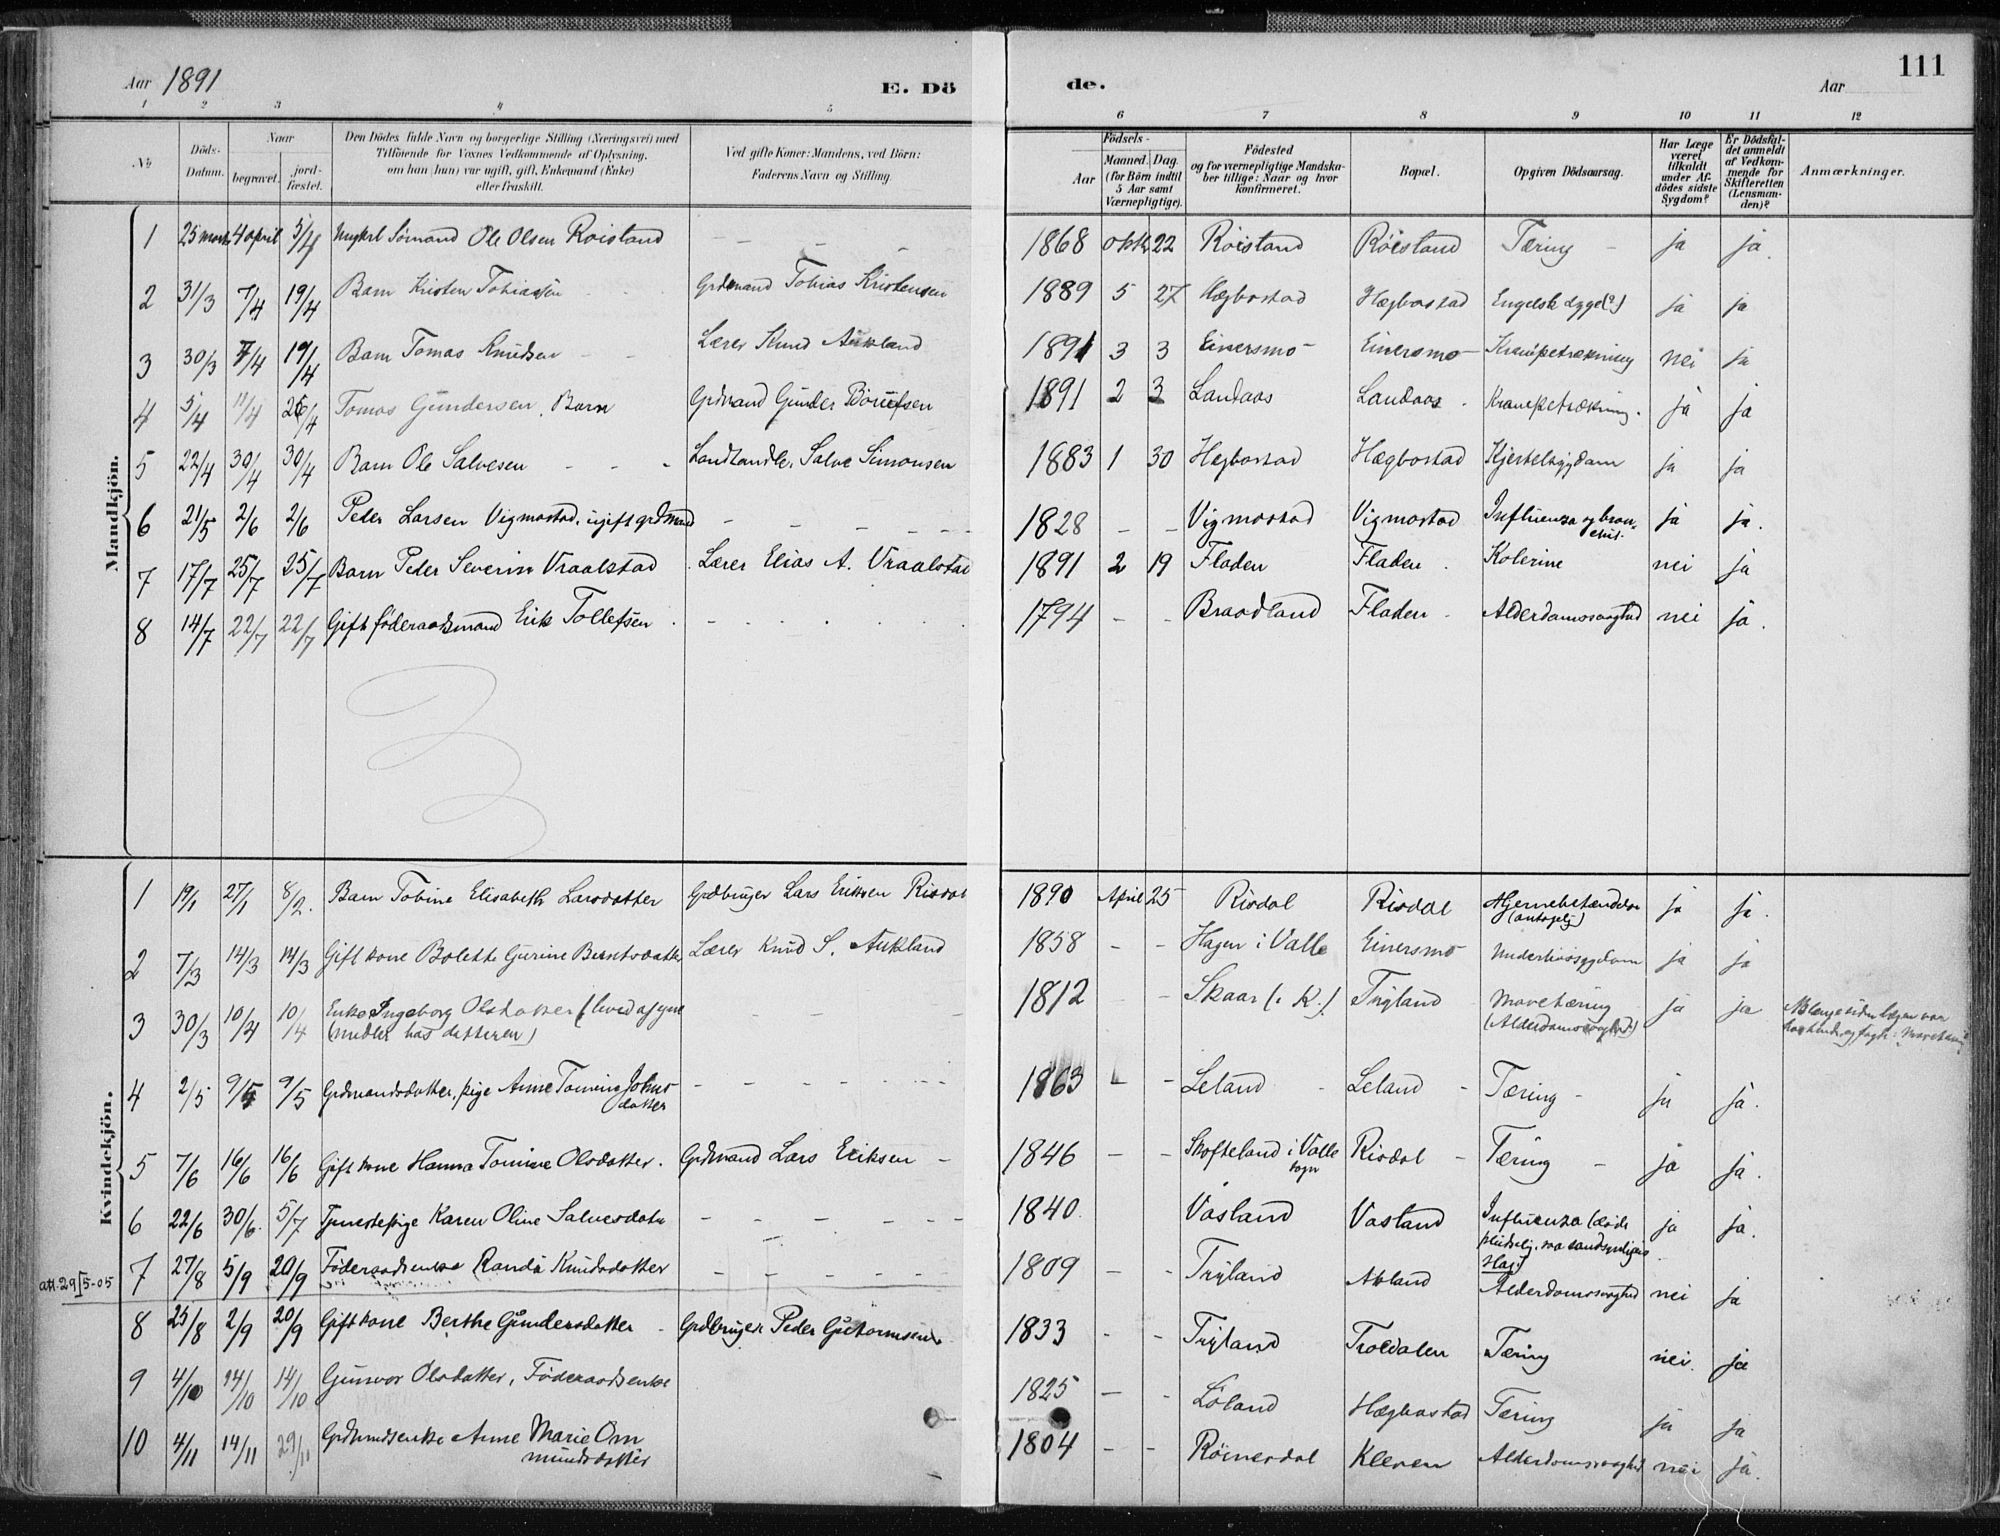 Aar 1891
E. Dö de.
Aar
111
1 2 3 4 5 6 7 8 9 10 11 12
No
Döds-Datum.
Naar
begravet.
jord-fæstet.
Den Dödes fulde Navn og borgerlige Stilling (Næringsvei) med
Tilföiende for Voxnes Vedkommende af Oplysning,
om han (hun) var ugift, gift, Enkemand (Enke)
eller fraskilt.
Ved gifte Koner: Mandens, ved Börn:
Faderens Navn og Stilling.
Födsels-
Aar
Maaned. Dag.
(for Börn indtil
5 Aar samt
Værnepligtige).
Födested
og for værnepligtige Mandska-
ber tillige: Naar og hvor
konfirmeret.
Bopæl.
Opgiven Dödsaarsag.
Har Læge
været
tilkaldt
under Af-
dödes sidste
Sygdom?
Er Dödsfal-
det anmeldt
af Vedkom-
mende for
Skifteretten
(Lensman-
den)?
Anmærkninger.
Mandkjön.
1 25 marts 4 april 5/4 Ungkrl Sömand Ole Olsen Roistand - - - 1868 oktb 22 Röistand Röistand Tæring - ja ja.
2 31/3 7/4 19/4 Barn Kristen Tobiassen - - Grdmand Tobias Kristensen 1889 5 27 Hægbostad Hægbostad Engelsk syge(?) ja ja
3 30/3 7/4 19/4 Barn Tomas Knudsen - - Lærer Knud Aukland 1891 3 3 Einersmo Einersmo Krampetrækning nei ja
4 5/4 11/4 26/4 Tomas Gundersen, Barn Grdmand Gunder Börufsen 1891 2 3 Landaas Landaas Krampetrækning. ja ja
5 22/4 30/4 30/4 Barn Ole Salvesen - - - Landhandler Salve Simonsen 1883 1 30 Hægbostad Hægbostad Kjertelsygdom ja ja
6 21/5 2/6 2/6 Peder Larsen Vigmostad, ugift grdmand - - - - 1828 - - Vigmostad Vigmostad Influenza og bron-
chit. ja ja.
7 17/7 25/7 25/7 Barn Peder Severin Vraalstad Lærer Elias A. Vraalstad 1891 2 19 Fladen Fladen Kolerine nei ja
8 14/7 22/7 22/7 Gift föderaadsmand Erik Tollefsen - 1794 - - Braadland Fladen Alderdomssvaghed nei ja.
Kvindekjön.
1 19/1 27/1 8/2. Barn Tobine Elisabeth Larsdatter Grdbruger Lars Eriksen Risdal 1890 April 25 Risdal Risdal Hjernebetændelse
(antagelig) ja ja.
2 7/3 14/3 14/3 Gift kone Bolette Gurine Berntsdatter Lærer Knud S. Aukland 1858 - - Hagen i Valle Einersmo Underlivssygdom ja ja
3 30/3 10/4 10/4 Enke Ingeborg Olsdatter (leved af egne
midler hos datteren) - - - 1812 - - Skaar (i K.) Tryland Mavetæring
(Alderdomssvaghed) ja ja
4 2/5 9/5 9/5 Grdmandsdatter, pige Anne Tomine Johns
datter - - - 1863 - - Leland Leland - Tæring - ja ja.
5 7/6 16/6 16/6 Gift kone Hanna Tomine Olsdatter. Grdmand Lars Eriksen - 1846 - - Skofteland i Valle
sogn Risdal - Tæring - ja ja.
6 22/6 30/6. 5/7 Tjenestepige Karen Oline Salvesdatter - - - - 1840. Vasland Vasland Influenza (döde
pludselig ja ja.
att. 29/5-05
7 27/8 5/9 20/9 Föderaadsenke Randi Knudsdatter - - - - 1809 - - Tryland Aaland Alderdomssvaghed nei ja
8 25/8 2/9 20/9 Gift kone Berthe Gundersdatter - Grdbruger Peder Guttormsen 1833 - - Tryland Troldalen Tæring nei. ja
9 4/10 14/10 14/10 Gunvor Olsdatter, Föderaadsenke 1825 - - Löland Hægbostad Tæring ja ja
10 4/11 14/11 29/11 Grdmandsenke Anne Marie Om
mundsdatter 1804 - - Röinesdal Kleven Alderdomssvaghed nei ja.